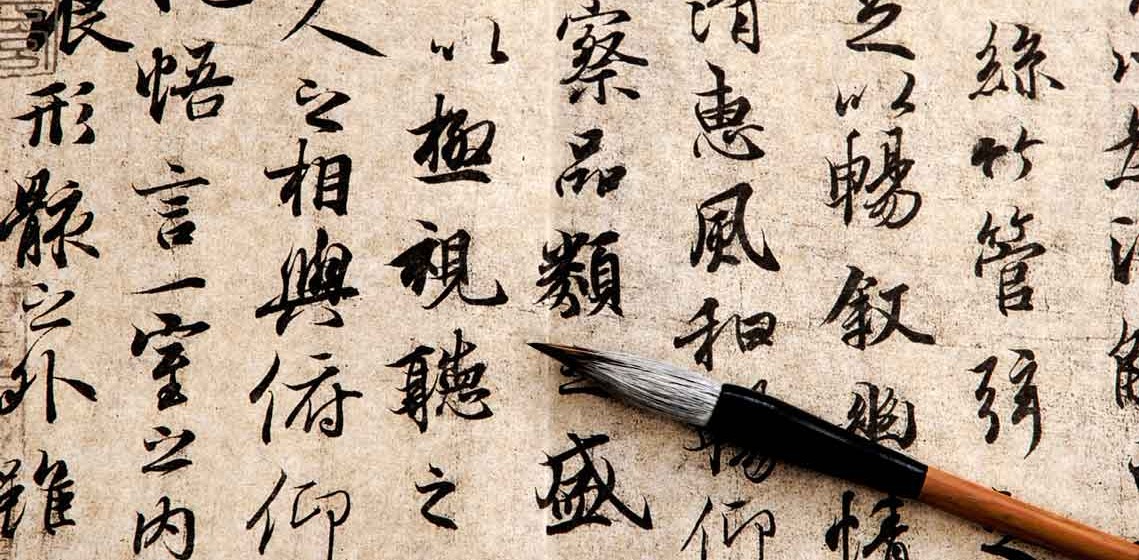 絲竹管弦之
足以暢叙幽情
清惠風和暢仰
察品類之盛
以極視聽之
人之相與俯仰
悟言一室之内
浪形骸之外雖